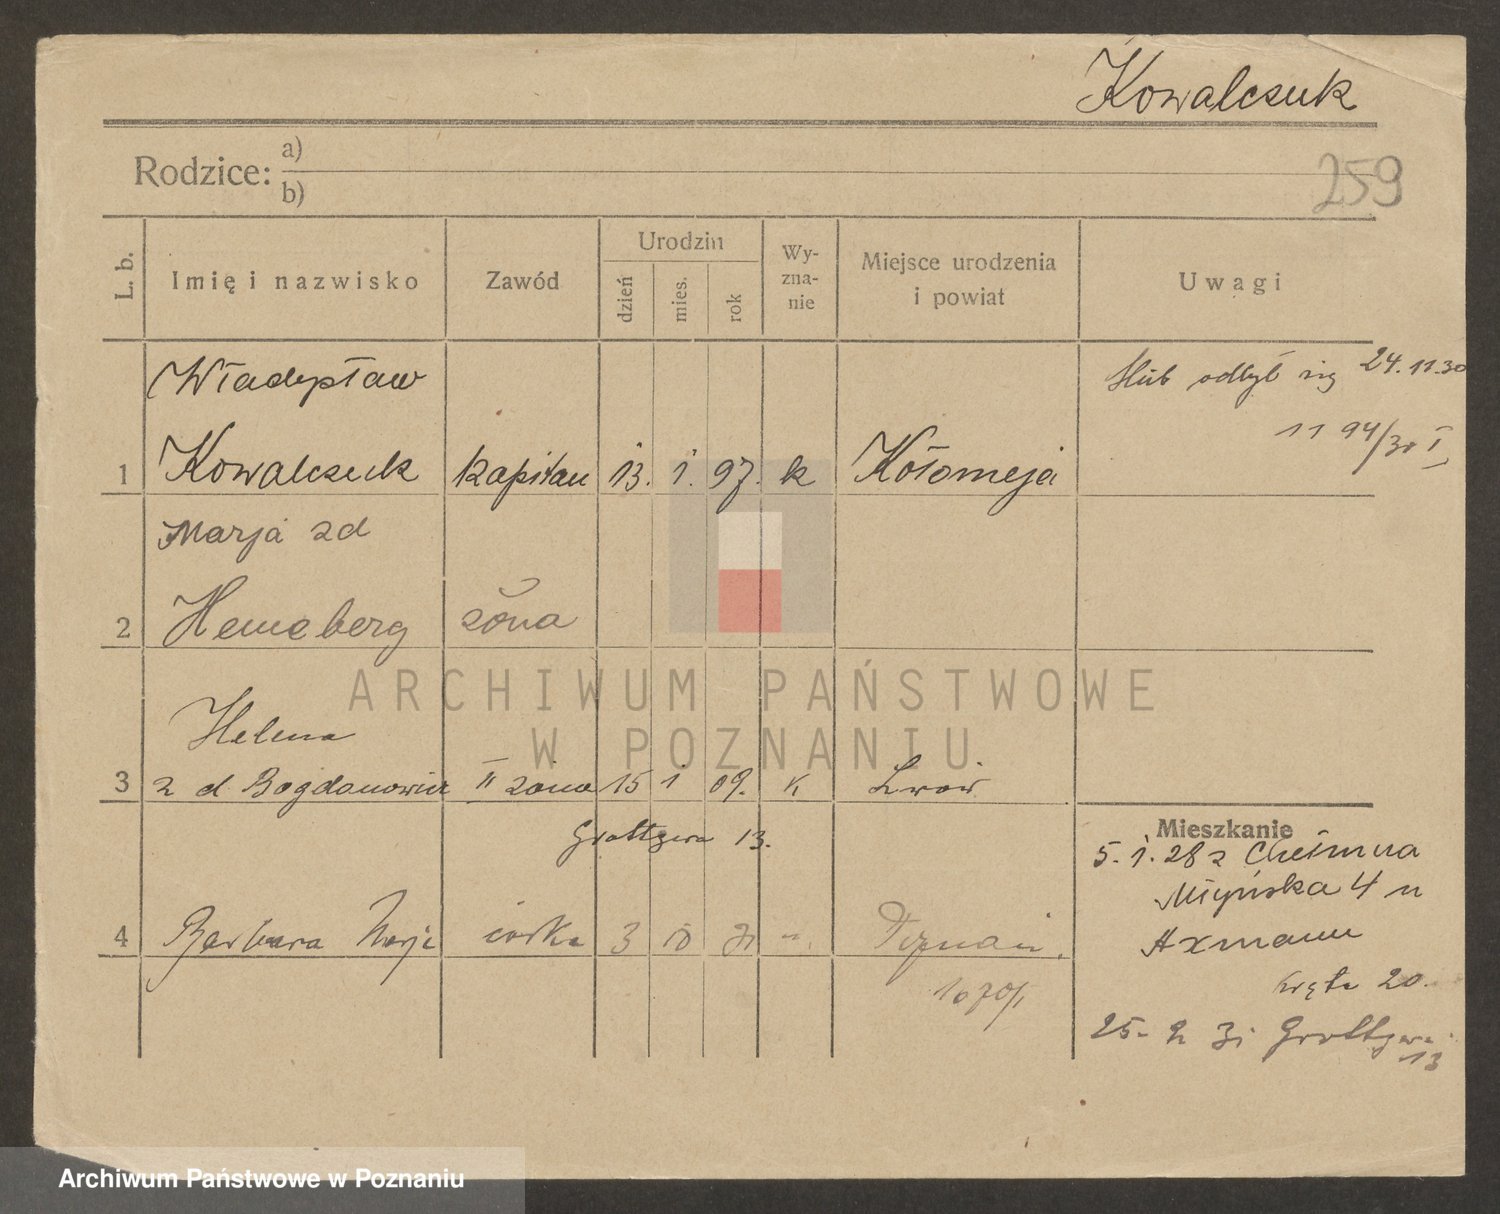 Kowalczuk
Rodzice: a)
b)
259
L. b.
Imię i nazwisko
Zawód
Urodzin
dzień
mies.
rok
Wy-
zna-
nie
Miejsce urodzenia
i powiat
Uwagi
Władysław
ślub odbył się 24.11.30
1194/30 I
1 Kowalczuk kapitan 13. 1. 97. k Kołomeja
Marja zd
2 Henneberg żona
ARCHIWUM PAŃSTWOWE
W POZNANIU
Helena
3 z d. Bogdanowicz II żona 15 1 09. k Lwów
Grottgera 13.
4 Barbara Marja córka 3 10 31 Poznań.
1670/1
Mieszkanie
5.1.28 z Chełmna
Młyńska 4 u
Axmann
Kręta 20.
25- 2 31 Grottgera
13
Archiwum Państwowe w Poznaniu